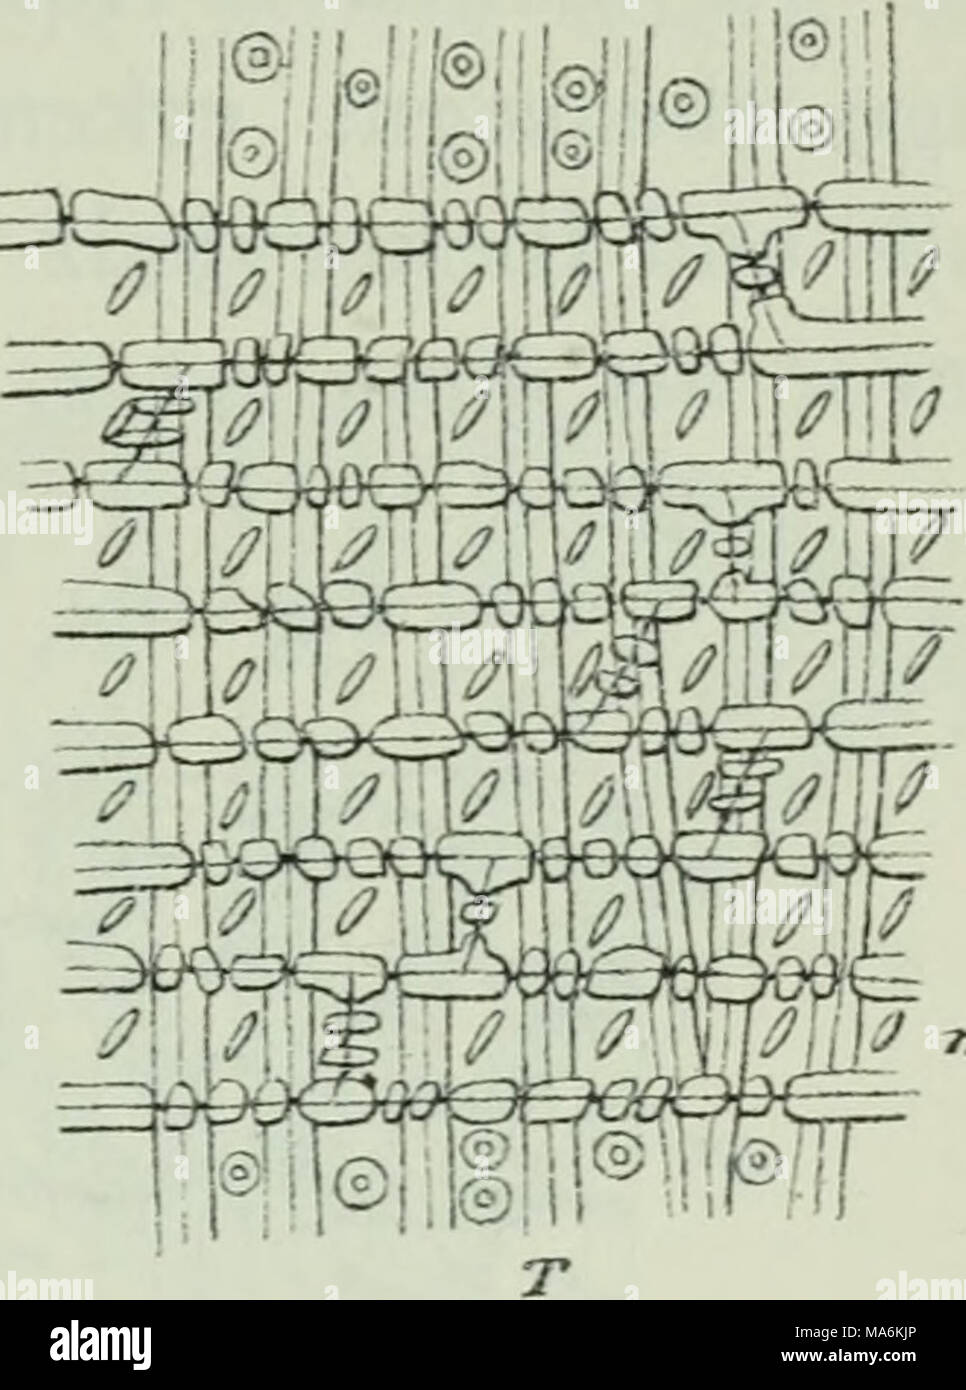 n
T
alamy
Image ID: MA6KJP
www.alamy.com